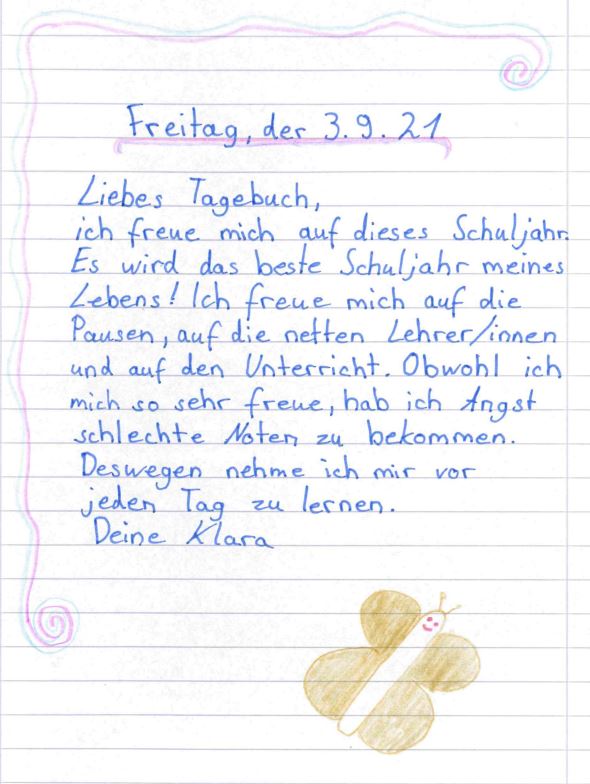 Freitag, der 3.9.21
Liebes Tagebuch,
ich freue mich auf dieses Schuljahr.
Es wird das beste Schuljahr meines
Lebens! Ich freue mich auf die
Pausen, auf die netten Lehrer/innen
und auf den Unterricht. Obwohl ich
mich so sehr freue, hab ich Angst
schlechte Noten zu bekommen.
Deswegen nehme ich mir vor
jeden Tag zu lernen.
Deine Klara